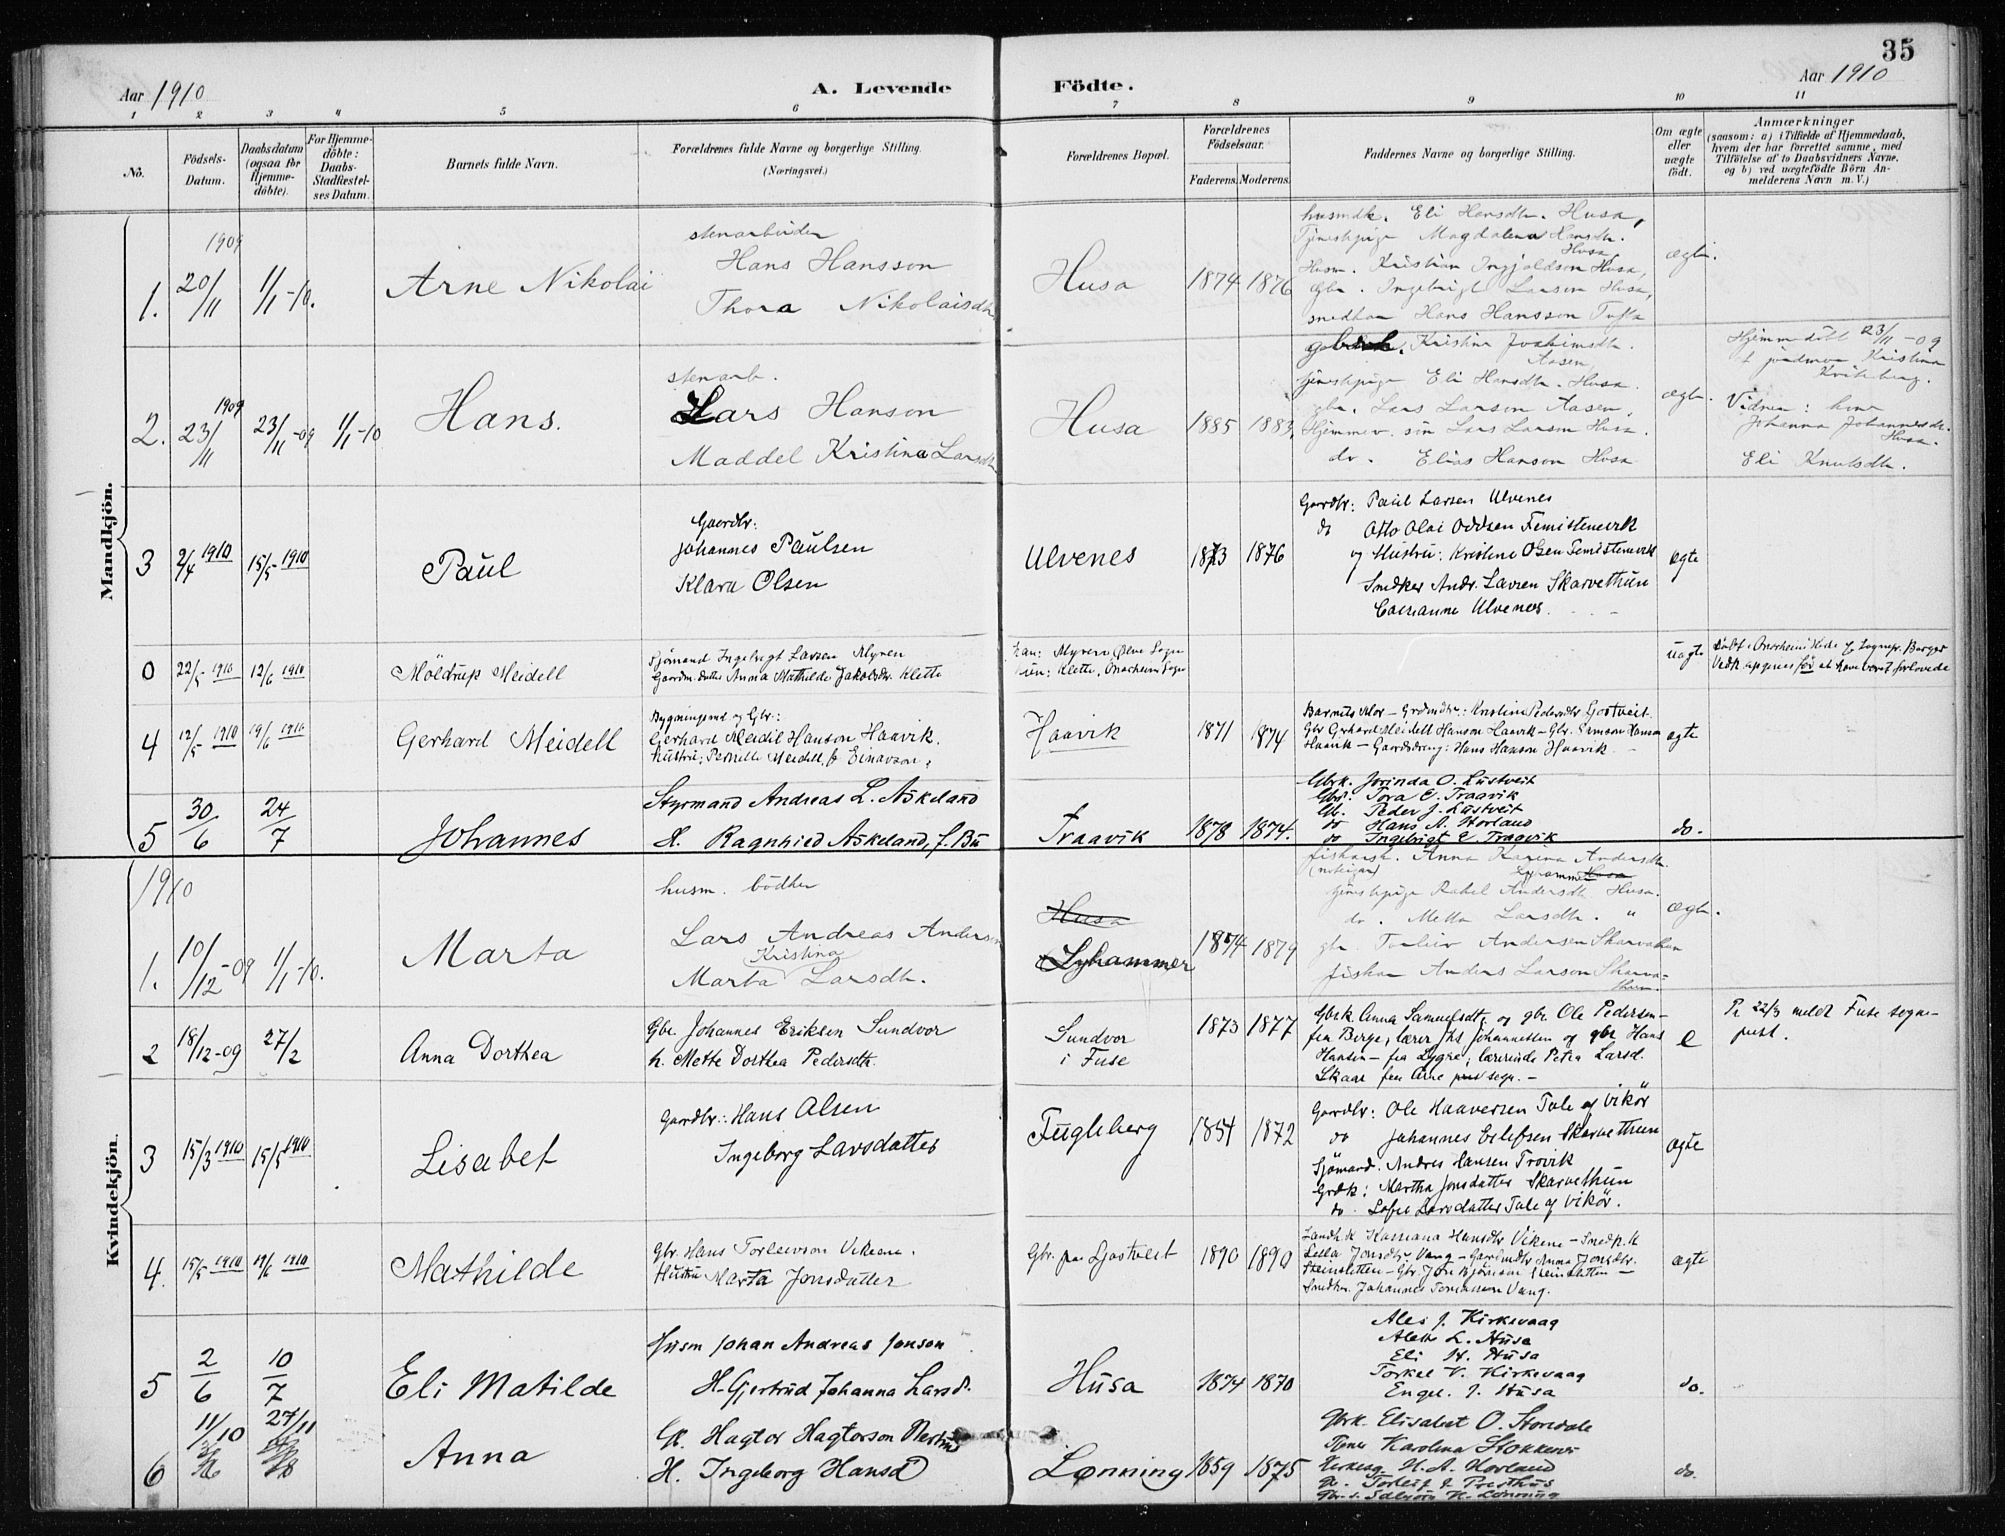 35
Aar 1910
A. Levende
Födte.
Aar 1910
1 2 3 4 5 6 7 8 9 10 11
No.
Födsels-
Datum.
Daabsdatum
(ogsaa for
Hjemme-
döbte).
For Hjemme-
döbte:
Daabs-
Stadfæstel-
ses Datum.
Barnets fulde Navn.
Forældrenes fulde Navne og borgerlige Stilling.
(Næringsvei.)
Forældrenes Bopæl.
Forældrenes
Födselsaar.
Faderens.
Moderens.
Faddernes Navne og borgerlige Stilling.
Om ægte
eller
uægte
födt.
Anmærkninger
(saasom: a) i Tilfælde af Hjemmedaab,
hvem der har forrettet samme, med
Tilföielse af to Daabsvidners Navne,
og b) ved uægtefödte Börn An-
melderens Navn m. V.)
Mandkjön.
1909
1. 20/11 1/1-10.
Arne Nikolai
stenarbeider
Hans Hansson
Thora Nikolaisdtr
Husa
1874 1876
husmdk. Eli Hansdtr. Husa,
Tjenestepige Magdalena Hansdtr.
Husa,
Husm. Kristian Ingjaldson Husa,
gbr. Ingebrigt Larson Husa,
smedhan Hans Hansson Tufta
ægte.
1909
2. 23/11 23/11-09 1/1-10
Hans.
stenarb.
Lars Hanson
Maddel Kristina Larsdtr
Husa
1885 1883,
Kristina Joakimsdtr.
Aasen,
tjenestepige Eli Hansdtr. Husa.
gbr. Lars Larson Aasen,
Hjemmev. sön Lars Larson Husa.
do. Elias Hanson Husa
ægte.
Hjemmedöbt 23/11-09
f jordmor Kristina
Kviteberg.
Vidner: kone
Johanna Johannesdtr.
Husa.
Eli Knutsdtr.
3 2/4 1910 15/5 1910
Paul
Gaardbr:
Johannes Paulsen
Klara Olsen
Ulvenes
1873 1876
Gaardbr: Paul Larsen Ulvenes
do Otto Olai Oddsen Femistenevik
og Hustru: Kristine Olsen Femistenevik
Snedker Andr. Larsen Skarvethun
Ulvenes.
ægte
0 22/5 1910 12/6 1910
Möldrup Meidell
Sjömand Ingebrigt Larsen Myren
Gaardm. datter Anna Mathilde Jakobsdtr. Klette
Han: Myren, Ölve Sogn
Hun: Klette, Onarheim Sogn
uægte
4 12/5 1910 19/6 1910
Gerhard Meidell
Bygningsmd. og Gbr:
Gerhard Meidel Hanson Haavik.
Hustru: Pernille Meidell, f. Einarson.
Haavik
1871 1874
Barnets Mor – Grdmdtr.: Kristina Pedersdtr Gjostveit.
Gbr Gerhard Meidell Hanson Haavik – Gbr. Hanson
Haavik – Gaardsdreng: Hans Hanson Haavik.
ægte
5 30/6 24/7
Johannes
Styrmand Andreas L. Askeland
H. Ragnhied Askeland, f. Bu
Traavik
1878 1874.
Gbrk. Jorinda O. Lustveit
Tora E. Traavik
Gb. Peder J. Lustveit
do Hans A. Horland
do Ingebrigt E. Traavik
do.
Kvindekjön.
1910
1. 10/12-09 1/1-10.
Marta
husm. bödker
Lars Andreas Anderson
Kristina
Marta Larsdtr.
Husa
Lyhammer
1874 1879
Anna Karina Andersdtr.
Lyhammer Husa
tjenestepige Rakel Andersdtr Husa.
do. Metta Larsdtr. "
gbr. Torleiv Andersen Skarvatun
fisker Anders Larson Skarva-
thun.
ægte.
2 18/12-09 27/2
Anna Dorthea
Gbr. Johannes Eriksen Sundvor
h. Mette Dorthea Pedersdtr.
Sundvor
i Fuse
1873 1877
Gbrk Anna Samuelsdtr, og gbr. Ole Pedersen –
fra Berge, lærer Jhs Johannessen og gbr Hans
Hansen – fra Lygre, lærerinde Petra Larsd.
Skaar fra Ølve sogn. –
e
Pr 22/3 meldt Fuse sogne-
prest.
3 15/3 1910 15/5 1910
Lisabet
Gaardbr: Hans Olsen
Ingeborg Larsdatter
Fugleberg
1854 1872
Gaardbr: Ole Haaversen Tule og Vikör
do Johannes Eilefsen Skarvethun
Sjömand. Andres Hansen Trovik
Grdk: Martha Jonsdatter Skarvethun
do. Sofie Larsdatter Tule og Vikör.
ægte
4. 15/5 1910 19/6 1910
Mathilde
Gbr. Hans Torleivson Vikene.
Hustru Marta Jonsdatter
Gbr. paa Gjostveit
1890 1890
Kassiana Hansdtr Vikene – Smedk. k
Jonsdtr Vang – Gaardmdtr Anna Jonsdtr.
Steinsletten – Gbr Jon Bjönson Steinsletten –
Smedkr. Johannes Tomassen Vang.
ægte
5 2/6 10/7
Eli Matilde
Husm Johan Andreas Jonson
H. Gjertrud Johanna Larsd.
Husa
1874 1870
Ales J. Kirkevaag
Alette L. Husa
Eli H. Husa
Torkel V. Kirkevaag
Engel. J. Husa
do.
6 11/10 27/11
Anna
Gk. Hagtor Hagtorson
H. Ingeborg Hansd
Lønning
1859 1875
Gbrk. Elisabet O. Stordale
Tjener Karolina Stokkenes
H. A. Horland
Torleif J. Presthus
Lønning
do.